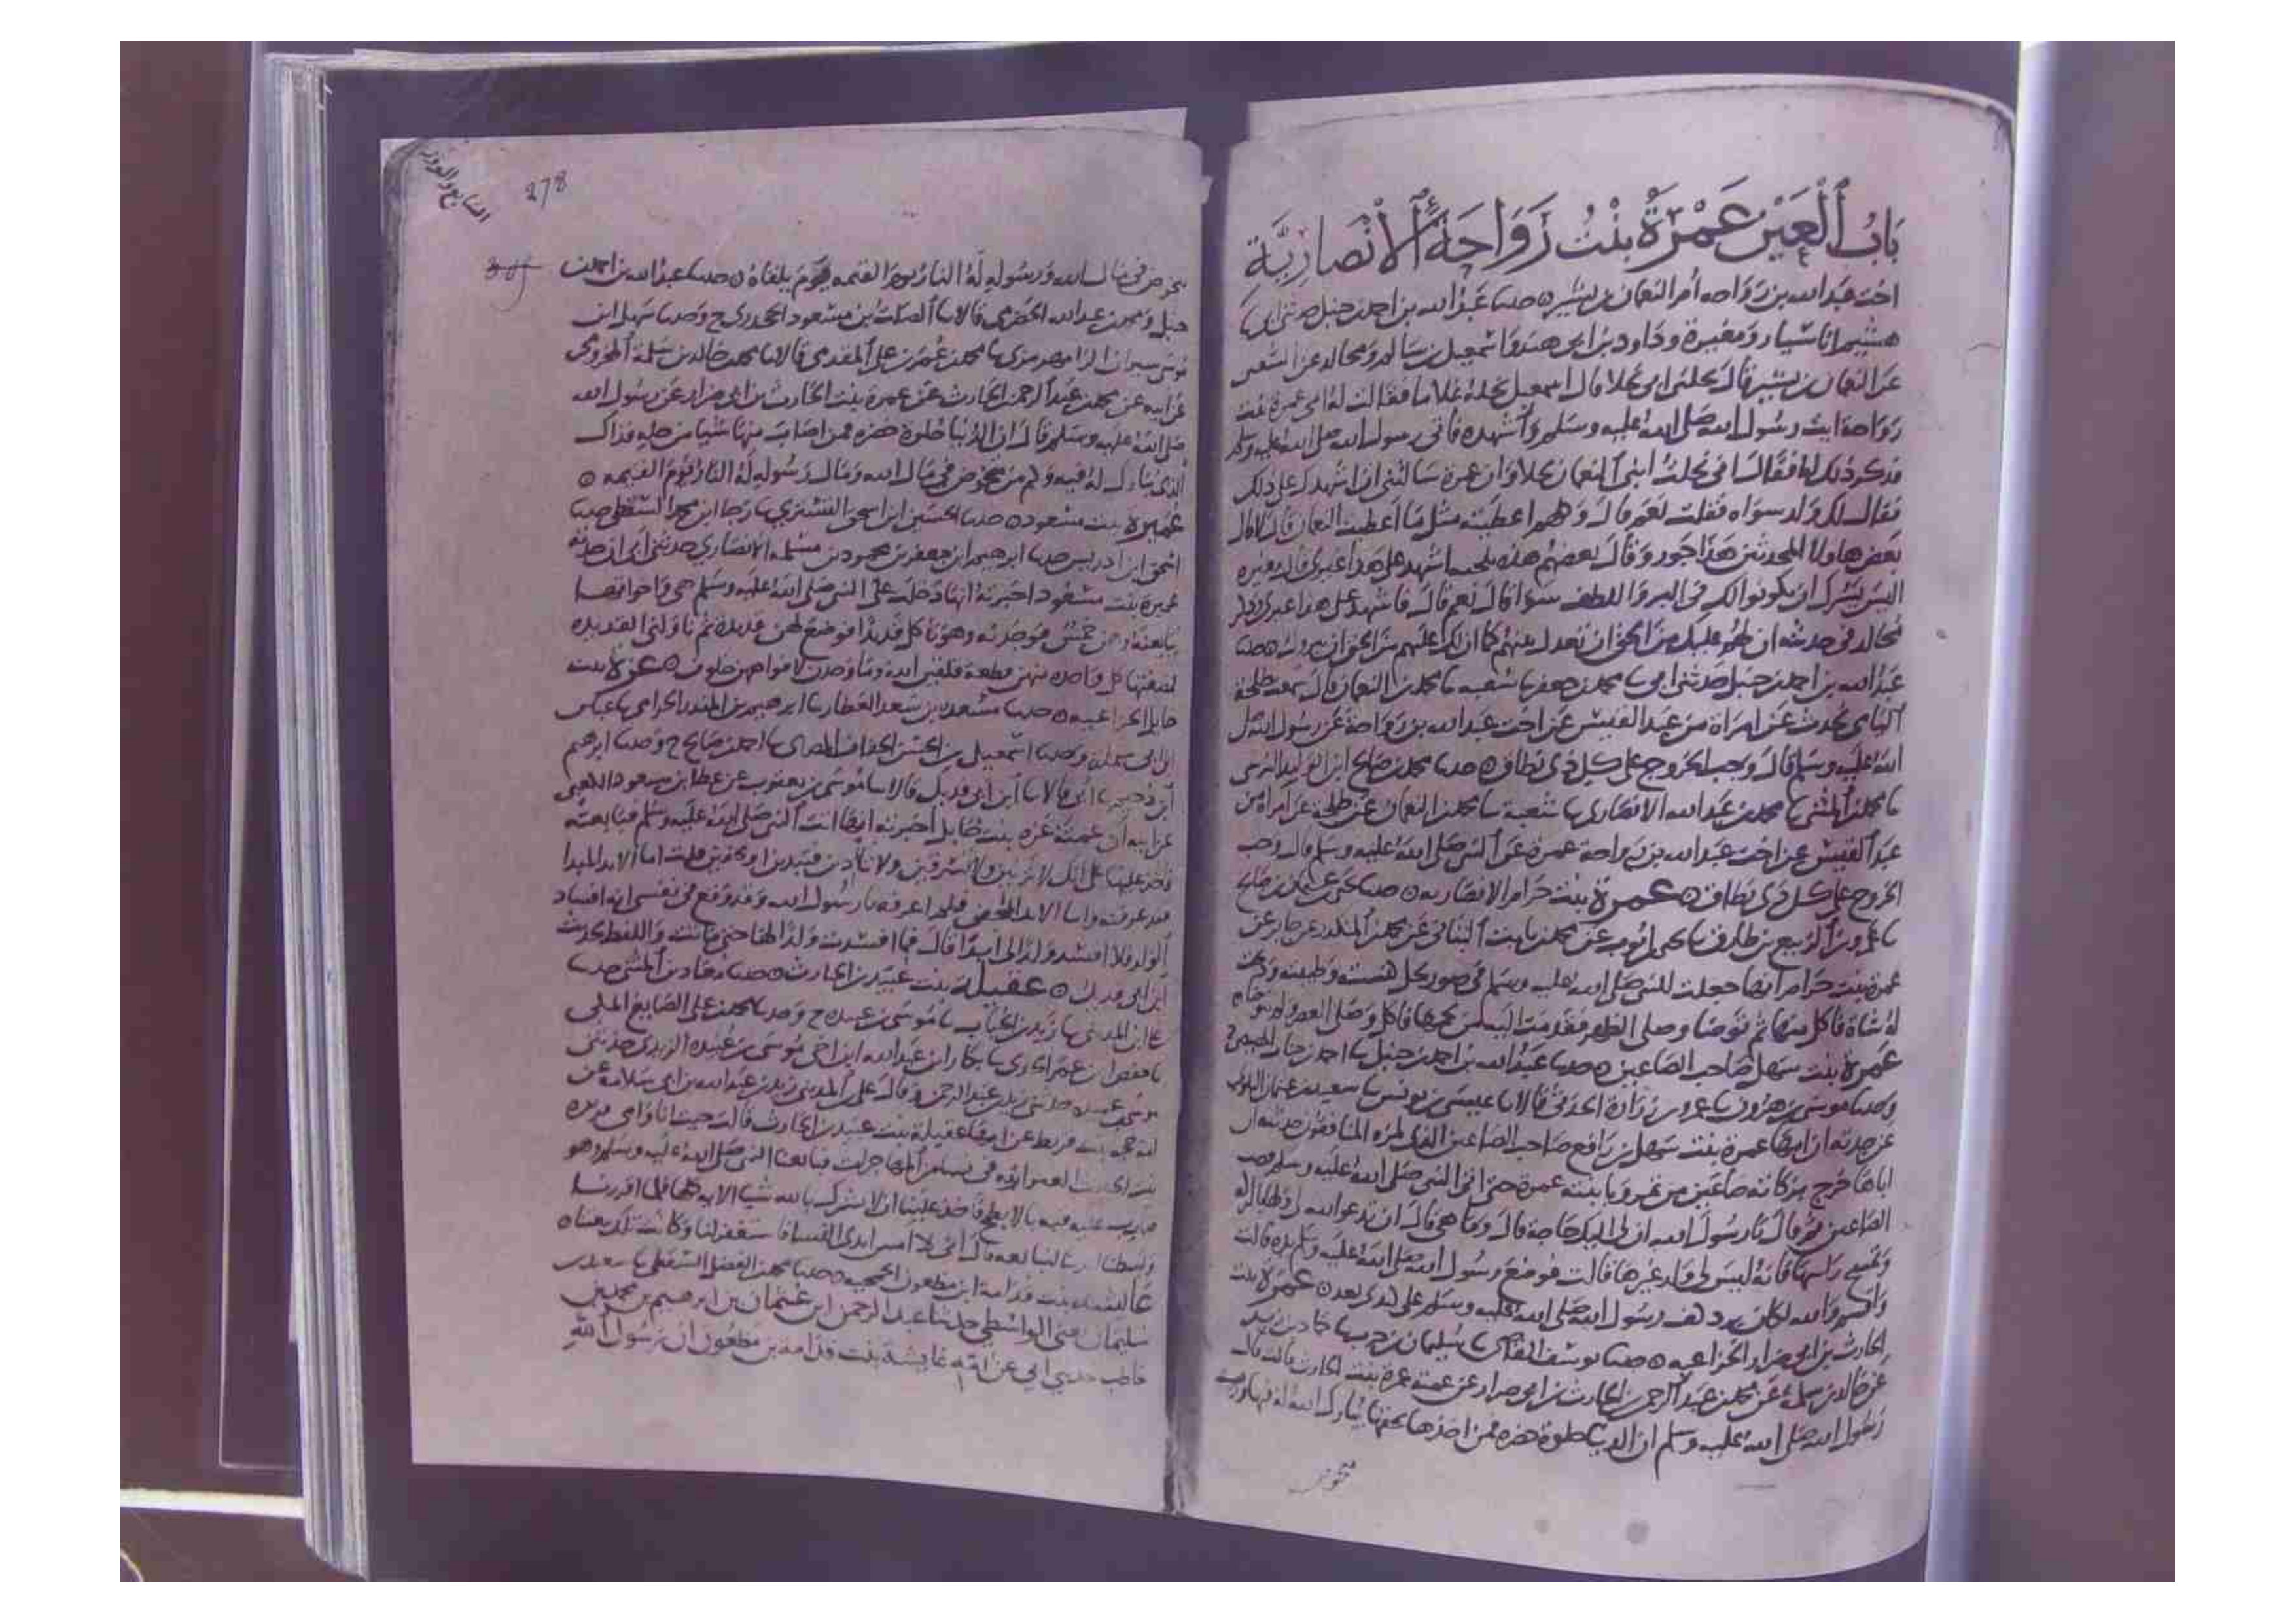 بَابُ ٱلْعَيْن عَمْرَةُ بِنْتُ رَوَاحَةَ ٱلْأَنْصَارِيَّة
اخت عبد الله بن رواحه أم النعمان بن بشير حدثنا عبد الله بن احمد بن حنبل حدثني ابي
هشيم انا سيار ومغيرة وداود بن ابي هند واسمعيل بن سالم ومجالد عن الشعبي
عن النعمان بن بشير قال نحلني ابي نحلا قال اسمعيل نحله غلاما فقالت له امي عمرة بنت
رواحة ايت رسول الله صلى الله عليه وسلم وأشهده فاتى رسول الله صلى الله عليه وسلم
فذكر ذلك له فقال اني نحلت ابني النعمان نحلا وان عمرة سالتني ان اشهدك على ذلك
فقال لك ولد سواه فقلت نعم قال وكلهم اعطيته مثل ما اعطيت النعمان قال لا قال
بعض هاولا المحدثين هذا جور وقال بعضهم هذه تلجية اشهد على هذا غيري قال مغيره
اليس يسرك ان يكونوا لك في البر واللطف سوا قال نعم قال فاشهد على هذا غيري وذكر
مجالد في حديثه ان لهم عليك من الحق ان تعدل بينهم كما ان لك عليهم من الحق ان
عبد الله بن احمد بن حنبل حدثني ابي محمد بن جعفر شعبه محمد بن النعمان قال سمعت طلحة
اليامي يحدث عن امراة من عبد القيس عن اخت عبد الله بن رواحة عن رسول الله صلى
الله عليه وسلم قال وجب الخروج على كل ذي نطاق حدثنا محمد بن صالح ابن الوليد النرسي
محمد بن المثنى محمد بن عبد الله الانصاري شعبة محمد بن النعمان عن طلحة عن امراة من
عبد القيس عن اخت عبد الله بن رواحة عمرة عن النبي صلى الله عليه وسلم قال وجب
الخروج على كل ذي نطاق عمرة بنت حزام الانصاريه حدثنا يحيى بن عثمان بن صالح
عمرو بن الربيع بن طارق يحيى بن ايوب عن محمد بن ثابت البناني عن محمد بن المنكدر عن جابر عن
عمرة بنت حزام انها جعلت للنبي صلى الله عليه وسلم في صور نخل كنسته وطيبته وذبحت
له شاة فاكل منها ثم توضا وصلى الظهر فقدمت اليه من لحمها فاكل وصلى العصر ولم يتوضا
عميرة بنت سهل صاحب الصاعين حدثنا عبد الله بن احمد بن حنبل احمد بن جناب المصيصي
وحدثنا موسى بن هرون عمرو بن زرارة الحدثي قالا عيسى بن يونس سعيد بن عثمان البلوي
عن جدته ان امها عميرة بنت سهل بن رافع صاحب الصاعين الذي لمزه المنافقون حدثته ان
اباها خرج بزكاته صاعين من تمر وبابنته عميرة حتى اتى النبي صلى الله عليه وسلم فصب
الصاعين ثم قال يا رسول الله ان لي اليك حاجة قال وما هي قال ان تدعو الله لي ولها
وتمسح راسها فانه ليس لي ولد غيرها قالت فوضع رسول الله صلى الله عليه وسلم يده قالت
واقسم بالله لكان برد كف رسول الله صلى الله عليه وسلم على كبدي بعد عمرة بنت
الحارث بن ابي ضرار الخزاعيه حدثنا يوسف القاضي سليمان بن حرب حماد بن زيد
عن خالد بن سلمة عن محمد بن عبد الرحمن بن الحارث بن ابي ضرار عن عمته عمرة بنت الحارث قالت قال
رسول الله صلى الله عليه وسلم ان الدنيا حلوة خضره فمن اخذها بحقها بارك الله له فيها ورب
متخوض
278
متخوض في مال الله ورسوله له النار يوم القيمه يوم يلقاه حدثنا عبد الله بن احمد بن
حنبل ومحمد بن عبد الله الحضرمي قالا الصلت بن مسعود الجحدري ح وحدثنا سهل ابن
موسى شيران الرامهرمزي محمد بن عمر بن علي المقدمي قالا محمد بن خالد بن سلمة المخزومي
عن ابيه عن محمد بن عبد الرحمن بن الحارث عن عمرة بنت الحارث بن ابي ضرار عن رسول الله
صلى الله عليه وسلم قال ان الدنيا حلوة خضره فمن اصاب منها شيا من حله فذاك
الذي يبارك له فيه وكم من متخوض في مال الله ومال رسوله له النار يوم القيمه
عميرة بنت مسعود حدثنا الحسين ابن اسحق التستري رجا ابن محمد السقطي حدثنا
اسحق ابن ادريس حدثنا ابرهيم ابن جعفر بن محمود بن مسلمه الانصاري حدثني ابي ان جدته
عميرة بنت مسعود اخبرته انها دخلت على النبي صلى الله عليه وسلم هي واخواتها
يبايعنه وهن خمس فوجدنه وهو ياكل قديدا فوضع لهن قديدة ثم ناولني القديده
فمضغتها كل واحده منهن قطعة فلقين الله وما وجدن لافواههن خلوف عزة بنت
خابل الخزاعيه حدثنا مسعدة بن سعد العطار ابرهيم بن المنذر الحزامي عباس
ابن ابي شملة وحدثنا اسمعيل بن الحسن الخفاف المصري احمد بن صالح ح وحدثنا ابرهيم
ابن دحيم ابي قالا ابن ابي فديك قالا موسى بن يعقوب عن عطا بن مسعود الكعبي
عن ابيه ان عمته عزة بنت خابل اخبرته انها اتت النبي صلى الله عليه وسلم فبايعته
فاخذ عليها على انك لا تزنين ولا تسرقين ولا تئدين فتبدين او تخفين قلت اما الابد المبدا
فقد عرفته واما الابد المخفى فلم اعرفه يا رسول الله وقد وقع في نفسي انه افساد
الولد فلا افسد ولدا لي ابدا قال فما افسدت ولدا لها حتى ماتت واللفظ لحديث
ابن ابي فديك عقيلة بنت عبيد بن الحارث حدثنا معاذ بن المثنى حدثنا
علي ابن المديني زيد بن الحباب موسى بن عبيده ح وحدثنا محمد بن علي الصايغ المكي
حفص ابن عمر الجدي بكار ابن عبد الله ابن اخي موسى بن عبيده الربذي حدثني
موسى بن عبيده حدثني زيد بن عبد الرحمن وقال علي ابن المديني زيد بن عبد الله بن ابي سلامة عن
امه حجة بنت قريط عن امها عقيلة بنت عبيد بن الحارث قالت جيت انا وامي بريره
بنت الحارث العتواريه في نسا من المهاجرات فبايعنا النبي صلى الله عليه وسلم وهو
ضارب عليه قبه بالابطح فاخذ علينا ان لا نشرك بالله شيا الايه كلها فلما اقررنا
وبسطنا ايدينا لنبايعه قال اني لا امس ايدي النسا فاستغفر لنا وكانت تلك بيعتنا
عايشه بنت قدامة ابن مظعون الجمحيه حدثنا محمد بن الفضل السقطي سعيد بن
سليمان حتى الواسطي حدثنا عبد الرحمن ابن عثمان بن ابرهيم بن محمد بن
حاطب حدثني ابي عن امه عايشة بنت قدامه بن مظعون ان رسول الله